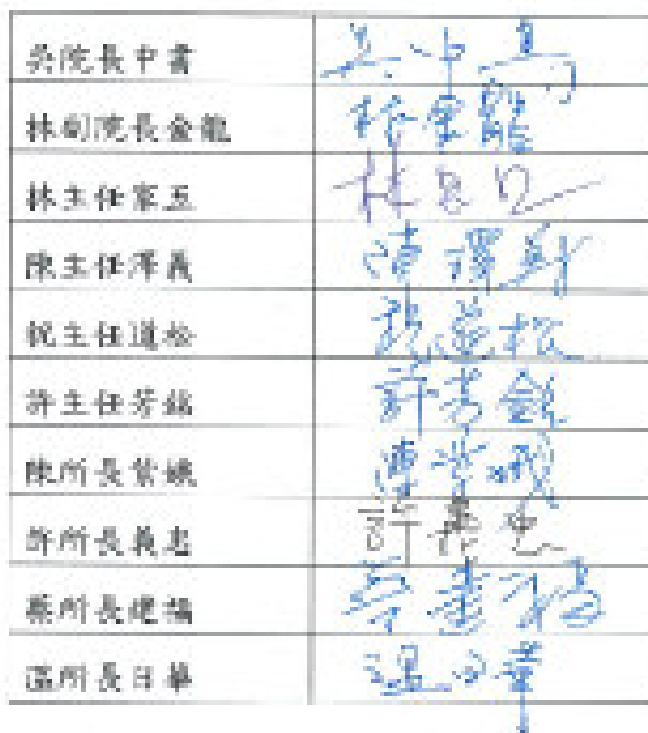 吳院長中書 吳中書
林副院長金龍 林金龍
林主任家五 林家五
陳主任澤義 陳澤義
祝主任道松 祝道松
許主任芳銘 許芳銘
陳所長紫娥 陳紫娥
許所長義忠 許義忠
蔡所長建福 蔡建福
溫所長日華 溫日華